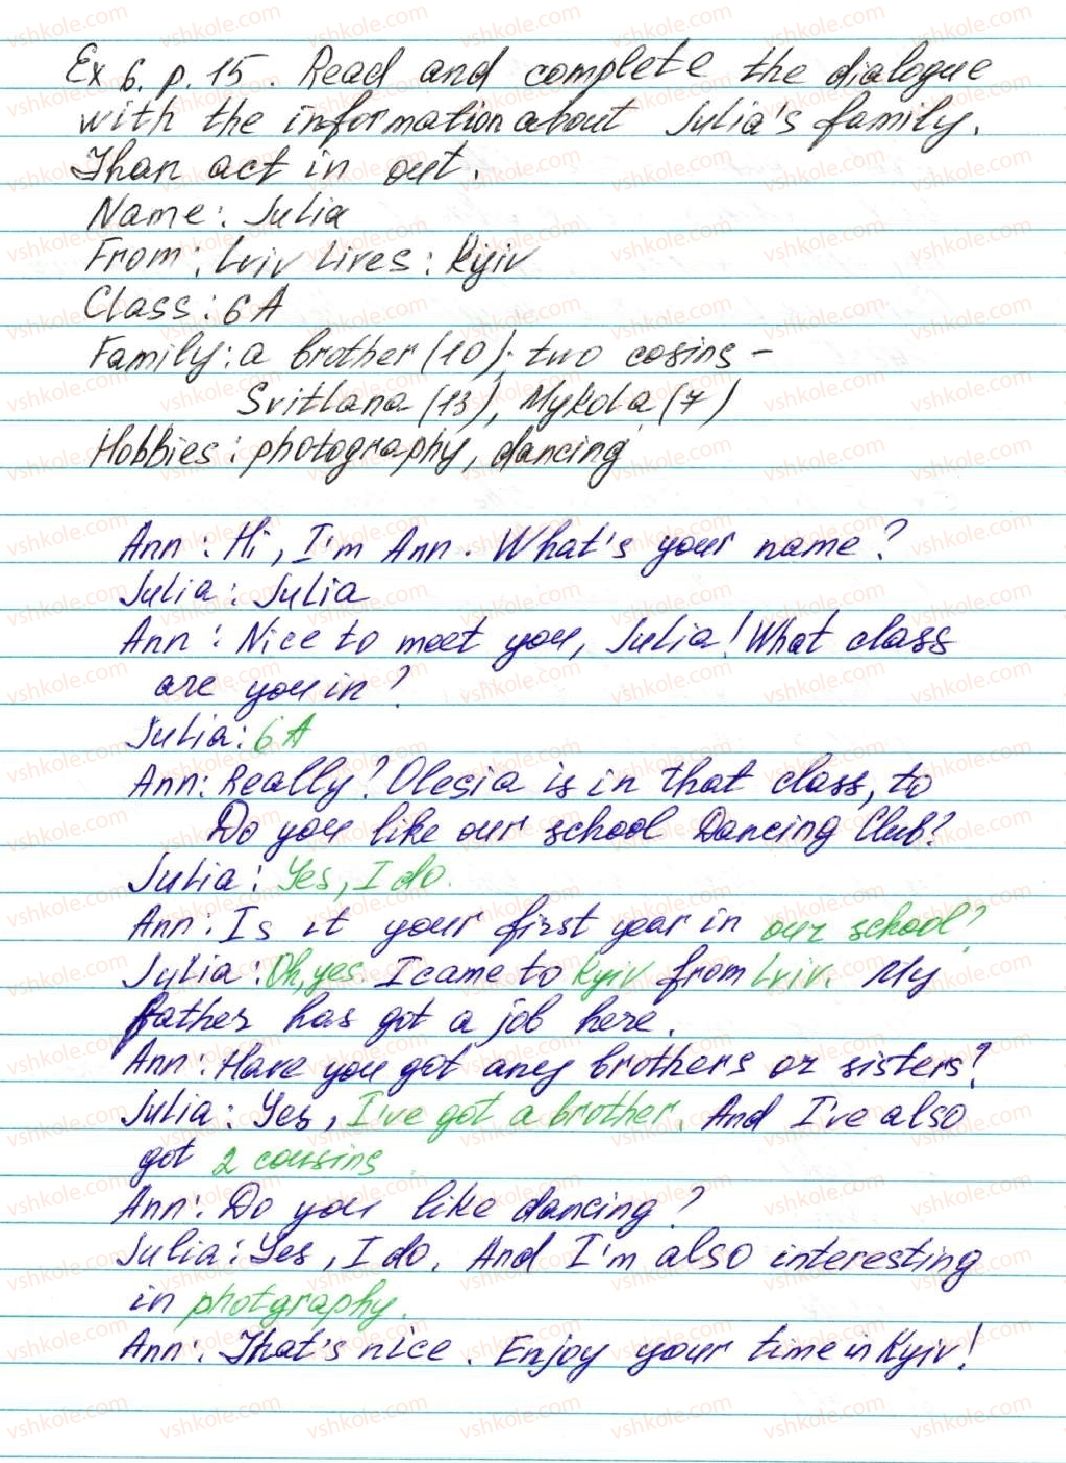 Ex 6. p. 15. Read and complete the dialogue
with the information about Julia's family.
Than act in out.
Name: Julia
From: Lviv Lives: Kyiv
Class: 6A
Family: a brother (10); two cosins -
Svitlana (13), Mykola (7)
Hobbies: photography, dancing
Ann: Hi, I'm Ann. What's your name?
Julia: Julia
Ann: Nice to meet you, Julia! What class
are you in?
Julia: 6A
Ann: Really? Olesia is in that class, to
Do you like our school Dancing Club?
Julia: Yes, I do.
Ann: Is it your first year in our school?
Julia: Oh, yes. I came to Kyiv from Lviv. My
father has got a job here.
Ann: Have you got any brothers or sisters?
Julia: Yes, I've got a brother. And I've also
got 2 cousins.
Ann: Do you like dancing?
Julia: Yes, I do. And I'm also interesting
in photgraphy.
Ann: That's nice. Enjoy your time in Kyiv!
vshkole.com